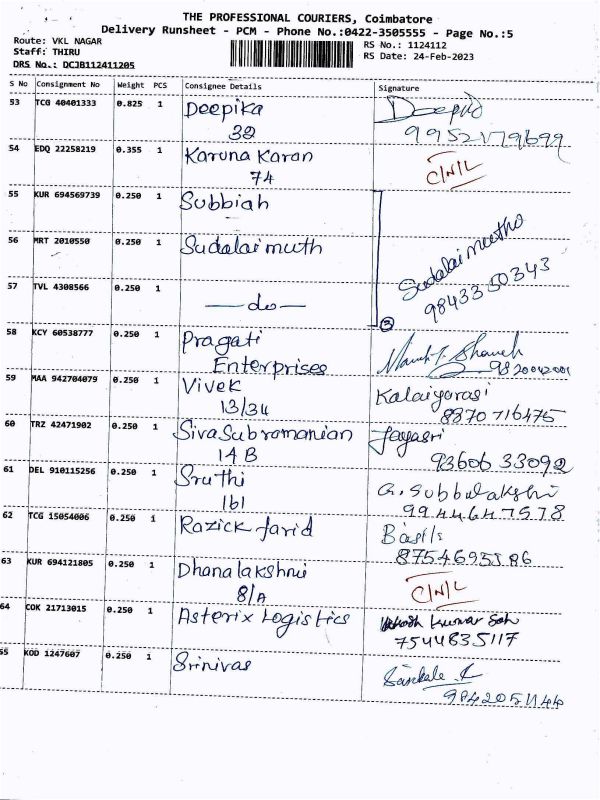 THE PROFESSIONAL COURIERS, Coimbatore
Delivery Runsheet - PCM - Phone No.:0422-3505555 - Page No.:5
Route: VKL NAGAR
RS No.: 1124112
Staff: THIRU
RS Date: 24-Feb-2023
DRS No.: DCJB112411205
S No Consignment No Weight PCS Consignee Details Signature
53 TCG 40401333 0.825 1 Deepika
32 9952179699
54 EDQ 22258219 0.355 1 Karuna Karan C/N/L
74
55 KUR 694569739 0.250 1 Subbiah
56 MRT 2010550 0.250 1 Sudalaimuth Sudalaimutho
9843350343
57 TVL 4308566 0.250 1
—do— ③
58 KCY 60538777 0.250 1 Pragati
Enterprises 9820042001
59 MAA 942704079 0.250 1 Vivek Kalaiyarasi
13/34 8870716475
60 TRZ 42471902 0.250 1 Sivasubramanian Jayasri
14 B 93606 33092
61 DEL 910115256 0.250 1 Sruthi G. Subbulakshi
161 9944647578
62 TCG 15054006 0.250 1 Razick farid
8754695586
63 KUR 694121805 0.250 1 Dhanalakshmi C/N/L
8/A
64 COK 21713015 0.250 1 Asterix Logistics Kumar Sah
7544835117
55 KOD 1247607 0.250 1 Srinivas
9842051144